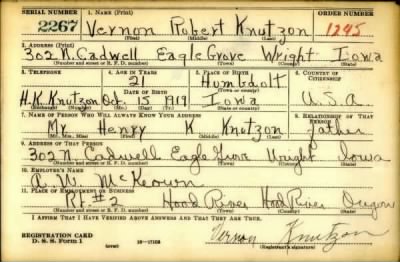 SERIAL NUMBER 1. NAME (Print) ORDER NUMBER
2267 Vernon Robert Knutzon 1245
(First) (Middle) (Last)
2. ADDRESS (Print)
302 N Cadwell Eagle Grove Wright Iowa
(Number and street or R. F. D. number) (Town) (County) (State)
3. TELEPHONE 4. AGE IN YEARS 5. PLACE OF BIRTH 6. COUNTRY OF CITIZENSHIP
21 Humboldt
DATE OF BIRTH (Town or county)
H.K. Knutzon Oct. 1919 Iowa U.S.A.
(Exchange) (Number) (Mo.) (Day) (Yr.) (State or country)
7. NAME OF PERSON WHO WILL ALWAYS KNOW YOUR ADDRESS 8. RELATIONSHIP OF THAT PERSON
Mr. Henry K. Knutzon father
(Mr., Mrs., Miss) (First) (Middle) (Last)
9. ADDRESS OF THAT PERSON
302 N. Cadwell Eagle Grove Wright Iowa
(Number and street or R. F. D. number) (Town) (County) (State)
10. EMPLOYER'S NAME
McKeown
11. PLACE OF EMPLOYMENT OR BUSINESS
Rt. #2 Hood River Hood River Oregon
(Number and street or R. F. D. number) (Town) (County) (State)
I AFFIRM THAT I HAVE VERIFIED ABOVE ANSWERS AND THAT THEY ARE TRUE.
REGISTRATION CARD
D. S. S. Form 1 Vernon Knutzon
(Registrant's signature)